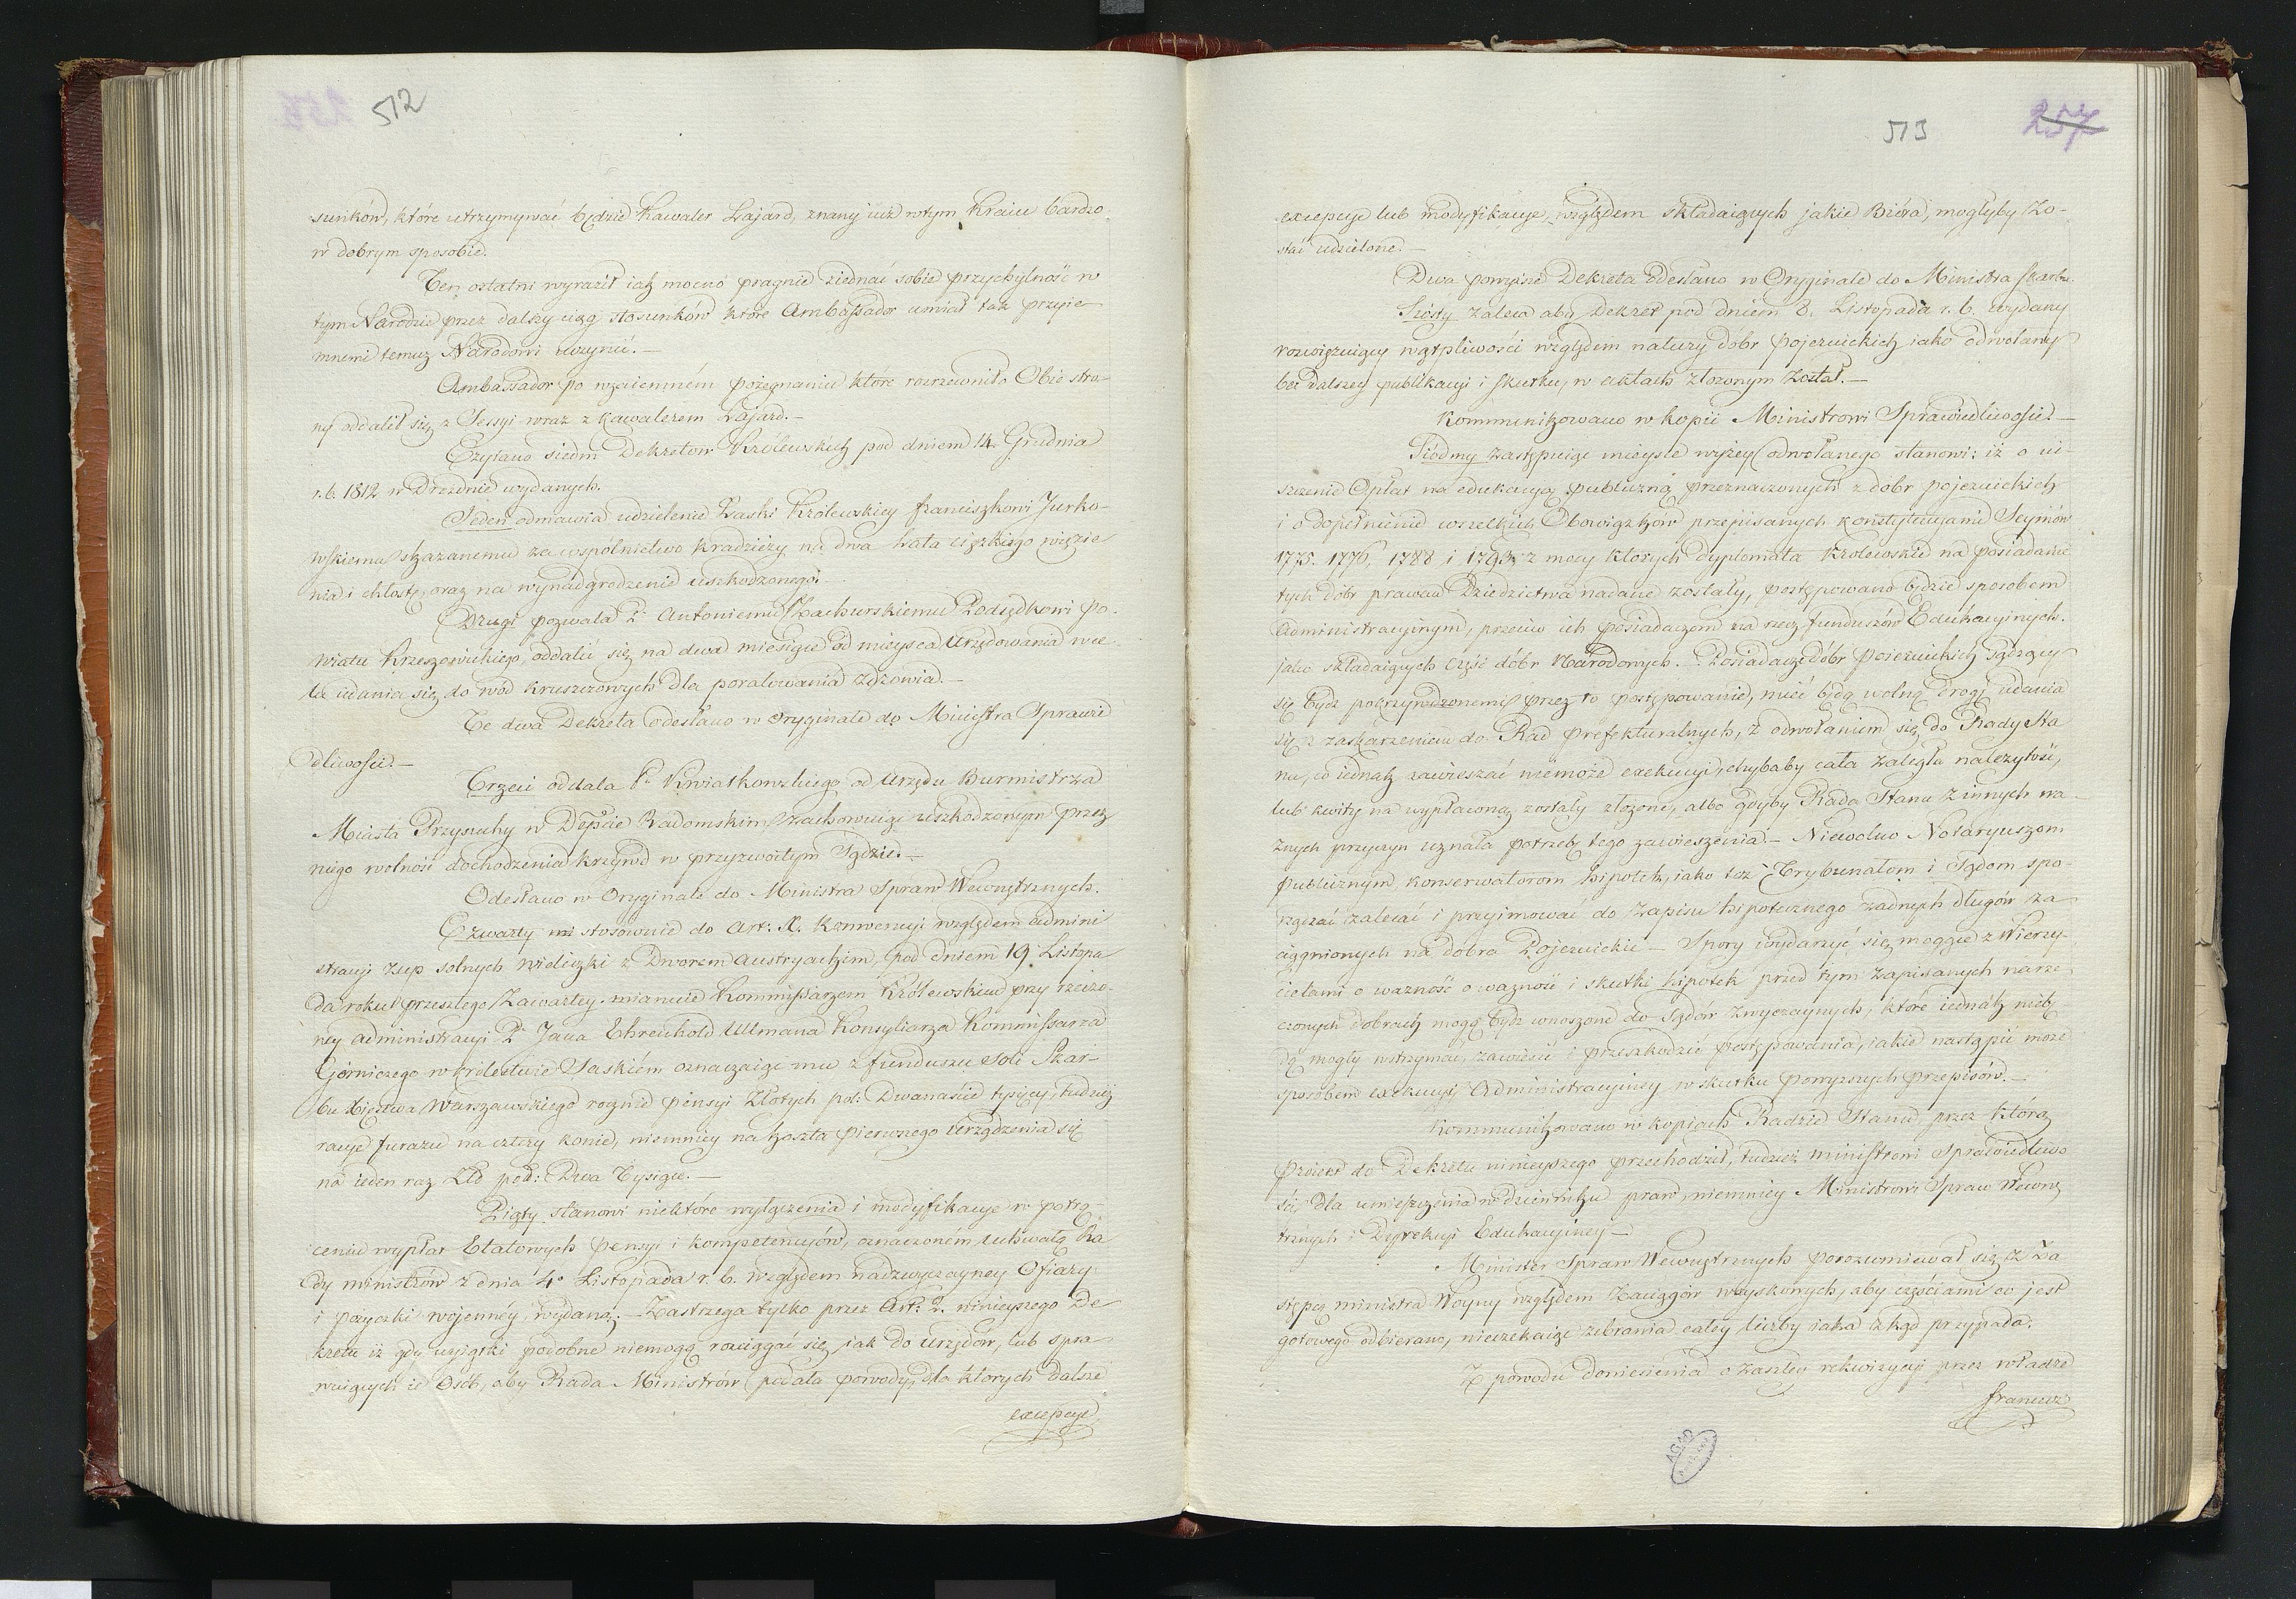 512
sunków, które utrzymywać będzie Kawaler Lajard, znany iuż w tym Kraiu bardzo
w dobrym sposobie.
Ten ostatni wyraził iak mocno pragnie ziednać sobie przychylność w
tym Narodzie przez dalszy ciąg stosunków które Ambassador umiał tak przyie-
mnemi temuż Narodowi uczynić.—
Ambassador po wzaiemném pożegnaniu które rozrzewniło Obie stro-
ny oddalił się z Sessyi wraz z Kawalerem Lajard.—
Czytano siedm Dekretow Królewskich pod dniem 14. Grudnia
r. b. 1812 w Dreznie wydanych.
Jeden odmawia udzielenie Łaski Królewskiey Franciszkowi Jurko-
wskiemu skazanemu za wspólnictwo kradzieży na dwa Lata ciężkiego więzie
nia i chłostę, oraz na wynadgrodzenie uszkodzonego.
Drugi pozwala P. Antoniemu Machurskiemu Podsędkowi Po-
wiatu Krzeszowickiego, oddalić się na dwa miesiące od mieysca Urzędowania w ce-
lu udania się do wód kruszcowych dla poratowania zdrowia.—
Te dwa Dekreta odesłano w oryginale do Ministra Sprawie
dliwości.—
Trzeci oddala P. Kwiatkowskiego od Urzędu Burmistrza
Miasta Przysuchy w Dep̃cie Radomskim zachowuiąc uszkodzonym przez
niego wolność dochodzenia krzywd w przyzwoitym Sądzie.—
Odesłano w Oryginale do Ministra Spraw Wewnętrznych.
Czwarty stosownie do Art: X. Konwencyi względem admini
stracyi żup solnych Wieliczki z Dworem Austryackim, pod dniem 19. Listopa
da roku przeszłego zawartey. mianuie Kommissarzem Królewskim przy rzeczo-
ney Administracyi P. Jana Ehrenhold Ullmana Konsyliarza Kommissarza
Górniczego w Królestwie Saskiém oznaczaiąc mu z funduszu Soli Skar-
bu Xięstwa Warszawskiego rocznie pensyi Złotych pol: Dwanaście tysięcy, tudzież
racye furażu na cztery konie, niemniey na koszta pierwszego urządzenia się
na ieden raz Złp pol: Dwa Tysiące.—
Piąty stanowi niektóre wyłączenia i modyfikacye w potrą-
ceniu wypłat Etatowych pensyi i kompetencyów, oznaczoném uchwałą Ra
dy ministrów z dnia 4o Listopada r. b. względem nadzwyczayney Ofiary
i pożyczki wojennéy, wydaną.— Zastrzega tylko przez Art: 2. ninieyszego De
kretu iż gdy wyiątki podobne niemogą rozciągać się iak do urzędów, lub spra-
wuiących ie Osób, aby Rada Ministrów podała powody, dla ktorych dalsze
excepcye
513
257
excepcye lub modyfikacye, względem składaiących jakie Bióra, mogłyby zo-
stać udzielone.—
Dwa powyższe Dekreta odesłano w Oryginale do Ministra Skarbu.
Szósty zaleca aby Dekret pod dniem 8. Listopada r. b. wydany
rozwięzuiący wątpliwości względem natury dóbr pojezuickich iako odwołany
bez dalszey publikacyi i skutku, w aktach złożonym został.—
Kommunikowano w kopii Ministrowi Sprawiedliwości.—
Siódmy zastępuiąc mieysce wyżey odwołanego stanowi: iż o ui-
szczenie Opłat na edukacyą publiczną przeznaczonych z dobr pojezuickich
i o dopełnienie wszelkich Obowiązków przepisanych konstytucyami Seymów
1775. 1776, 1788 i 1793. z mocy ktorych dyplomata Królewskie na posiadanie
tych dóbr prawem Dziedzictwa nadane zostały, postępowano będzie sposobem
Administracyinym, przeciw ich posiadaczom na rzecz funduszów Edukacyinych.
jako składaiących część dóbr Narodowych.— Posiadacze dóbr Poiezuickich sądzący
się bydź pokrzywdzonemi przez to postępowanie, mieć będą wolną drogę udania
się z zaskarzeniem do Rad Prefekturalnych, z odwołaniem się do Rady Sta
nu, co iednak zawieszać niemoże exekucyi, chybaby cała zaległa należytość,
lub kwity na wypłaconą zostały złożone, albo gdyby Rada Stanu z innych wa-
żnych przyczyn uznała potrzebę tego zawieszenia.— Niewolno Notaryuszom
Publicznym, konserwatorom hipotek, iako też Trybunałom i Sądom spo-
rządzać zalecać i przyimować do zapisu hipotecznego żadnych długów za
ciągnionych na dobra Pojezuickie— Spory wydarzyć się mogące z Wierzy-
cielami o ważność o ważność i skutki hipotek przed tym zapisanych na rze-
czonych dobrach mogą bydź wnoszone do Sądów zwyczaynych, które iednak nie bę-
dą mogły wstrzymać, zawiesić i przeszkodzić postępowania, iakie nastąpić może
sposobem exekucyi Administracyiney w skutku powyzszych przepisów.—
Kommunikowano w kopiach Radzie Stanu, przez którą
Proiekt do Dekretu ninieyszego przechodził, tudzież ministrowi Sprawiedliwo
ści, dla umieszczenia w dzienniku praw, niemniey Ministrowi Spraw Wewnę
trznych i Dyrekcyi Edukacyiney—
Minister Spraw Wewnętrznych porozumiewał się z Za
stępcą ministra Woyny względem Zaciągów woyskowych, aby częściami co jest
gotowego odbierano, nieczekaiąc zebrania całey liczby iaka zkąd przypada.
Z powodu doniesienia o zaszłey rekwizycyi przez władze
francuz
AGAD